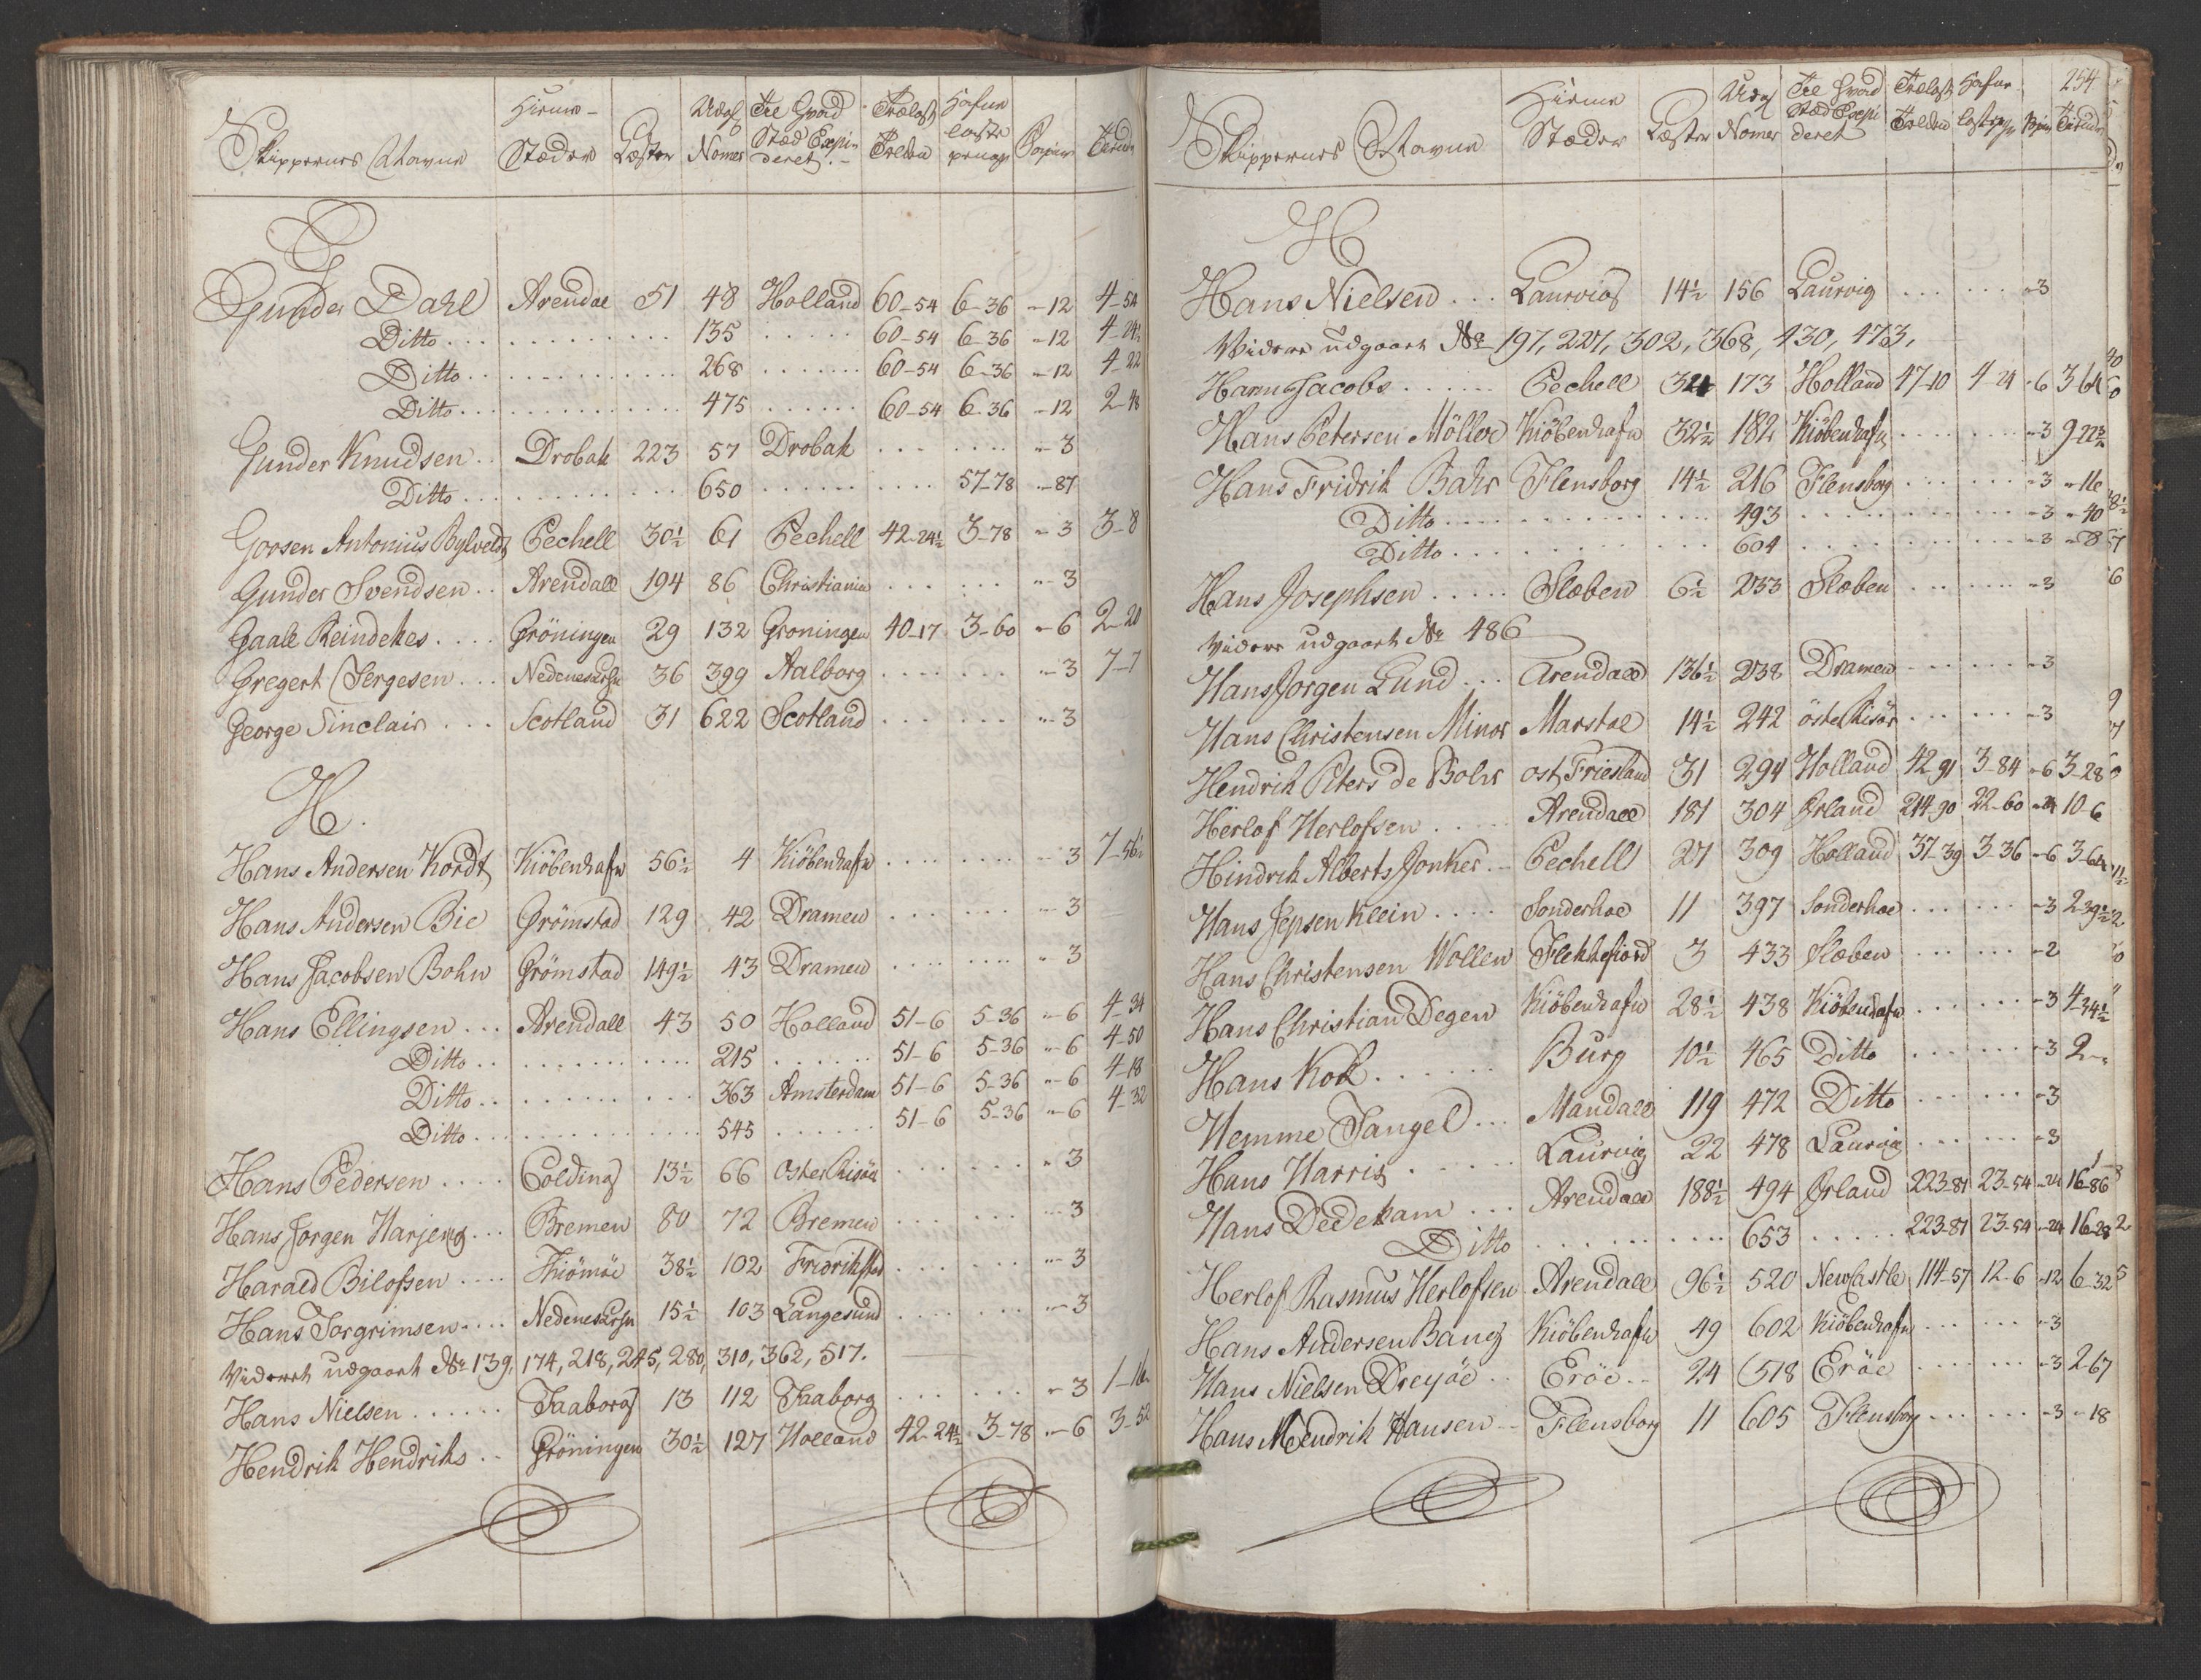 Skippernes Navne Hiem- Stæder Læster Udg Nomer Til Hvad Stæd Expederet Trælast Tolden Hafne laste penge Papiir
G
Gunder Dahl Arendal 51 48 Holland 60-54 6-36 -12 4-54
Ditto 135 60-54 6-36 -12 4-24½
Ditto 268 60-54 6-36 -12 4-22
Ditto 475 60-54 6-36 -12 2-48
Gunder Knudsen Drobak 223 57 Drobak - 3
Ditto 650 57-78 -87
Goosen Antonius Bylveldt Pechell 30½ 61 Pechell 42-24½ 3-78 - 3 3-8
Gunder Svendsen Arendall 194 86 Christiania - 3
Gaale Reindekes Gröningen 29 132 Groningen 40-17 3-60 - 6 2-20
Gregert Tergesen Nedenes 36 399 Aalborg - 3 7-7
George Sinclair Scotland 31 622 Scotland - 3
H.
Hans Andersen Kordt Kiöbenhafn 56½ 4 Kiöbenhafn - 3
Hans Andersen Bie Grömstad 129 42 Dramen - 3
Hans Jacobsen Bohn Grömstad 149½ 43 Dramen - 3
Hans Ellingsen Arendall 43 50 Holland 51-6 5-36 - 6 4-34
Ditto 215 51-6 5-36 - 6 4-50
Ditto 363 Amsterdam 51-6 5-36 - 6 4-18
Ditto 545 51-6 5-36 - 6 4-32
Hans Pedersen Colding 13½ 66 Oster Risöer - 3
Hans Jorgen Harjeng Bremen 80 72 Bremen - 3
Harald Bilofsen Thiömöe 38½ 102 Fridrikstad - 3
Hans Torgrimsen Nedenes 15½ 103 Langesund - 3
Videret udgaaet No 139, 174, 218, 245, 280, 310, 362, 517.
Hans Nielsen Faaborg 13 112 Faaborg - 3 1-16
Hendrik Hendriks Gröningen 30½ 127 Holland 42-24½ 3-78 - 6 3-52
254
Skippernes Navne Hiemme Stæder Læster Udg Nomer Til Hvad Stæd Expederet Trælast Tolden Hafne
H
Hans Nielsen Laurvig 14½ 156 Laurvig - 3
Videre udgaaet No 197, 227, 302, 368, 430, 473,
Harm Jacobs Pechell 34 173 Holland 47-10 4-24 - 6 3-64
Hans Petersen Möller Kiöbenhafn 32½ 182 Kiöbenhafn - 3
Hans Fridrik Bahr Flensborg 14½ 216 Flensborg - 3 - 16
Ditto 493 - 3 - 40
Ditto 604 - 3 - 8
Hans Josephsen Slæben 6½ 233 Slæben - 3
Videre udgaaet No 486
Hans Jorgen Lund Arendall 136½ 238 Dramen - 3
Hans Christensen Minor Marstal 14½ 242 öster Risör - 3
Hendrik Peters de Bohr ost Friesland 31 294 Holland 42-91 3-84 - 6 3-28
Herlof Herlofsen Arendall 181 304 Irland 214-90 22-60 - 24 10-6
Hindrik Alberts Jonker Pechell 27 309 Holland 37-39 3-36 - 6 3-64
Hans Jepsen Klein Sonderhoe 11 397 Sonderhoe - 3 2-39½
Hans Christensen Wollen Flekkefiord 3 433 Slæben - 2
Hans Christian Degen Kiöbenhafn 28½ 438 Kiöbenhafn - 3 4-34½
Hans Kok Burg 10½ 465 Ditto - 3 2-
Hemme Tangel Mandall 119 472 Ditto - 3
Hans Harris Laurvig 22 478 Laurvig - 3
Hans Dedekam Arendall 188½ 494 Irland 223-81 23-54 - 24 16-86
Ditto 653 223-81 23-54 - 24 16-28
Herlof Rasmus Herlofsen Arendall 96½ 520 NewCastle 114-57 12-6 - 12 6-32
Hans Andersen Bang Kiöbenhafn 49 602 Kiöbenhafn - 3
Hans Nielsen Dreyöe Eröe 24 518 Eröe - 3 2-67
Hans Hendrik Hansen Flensborg 11 605 Flensborg - 3 - 18